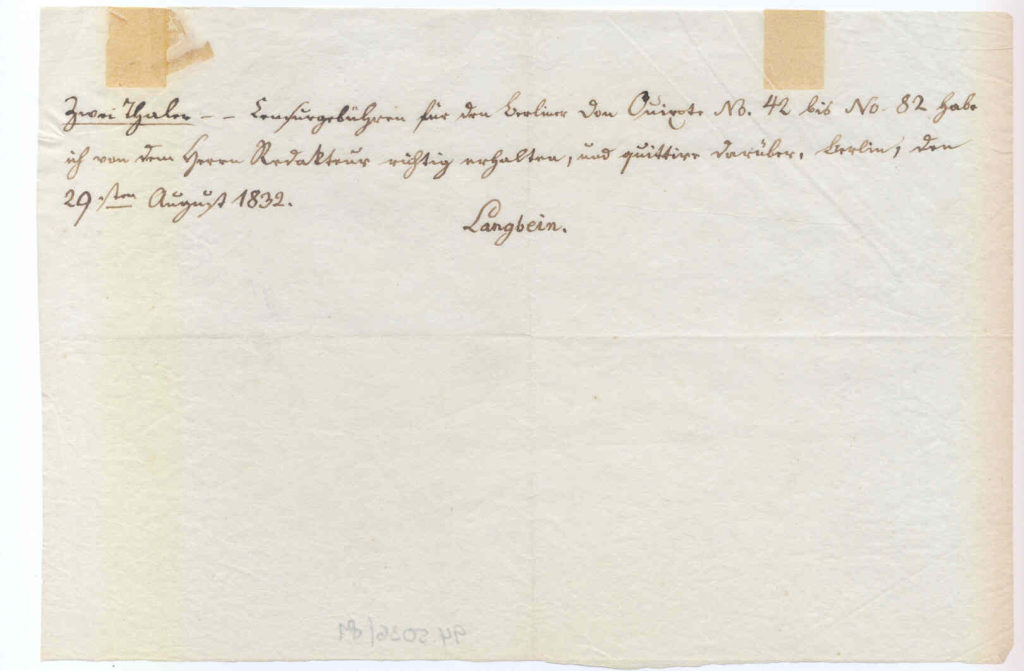 Zwei Thaler -- Censurgebühren für den Berliner Don Quixote No. 42 bis No. 82 habe
ich von dem Herrn Redakteur richtig erhalten, und quittire darüber. Berlin, den
29.sten August 1832.
Langbein.
94 5036/81